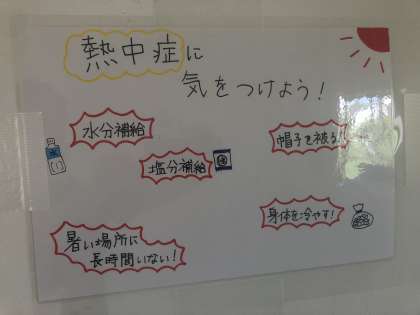 熱中症に
気をつけよう！
水分補給
帽子を被る！
塩分補給
身体を冷やす！
暑い場所に
長時間いない！